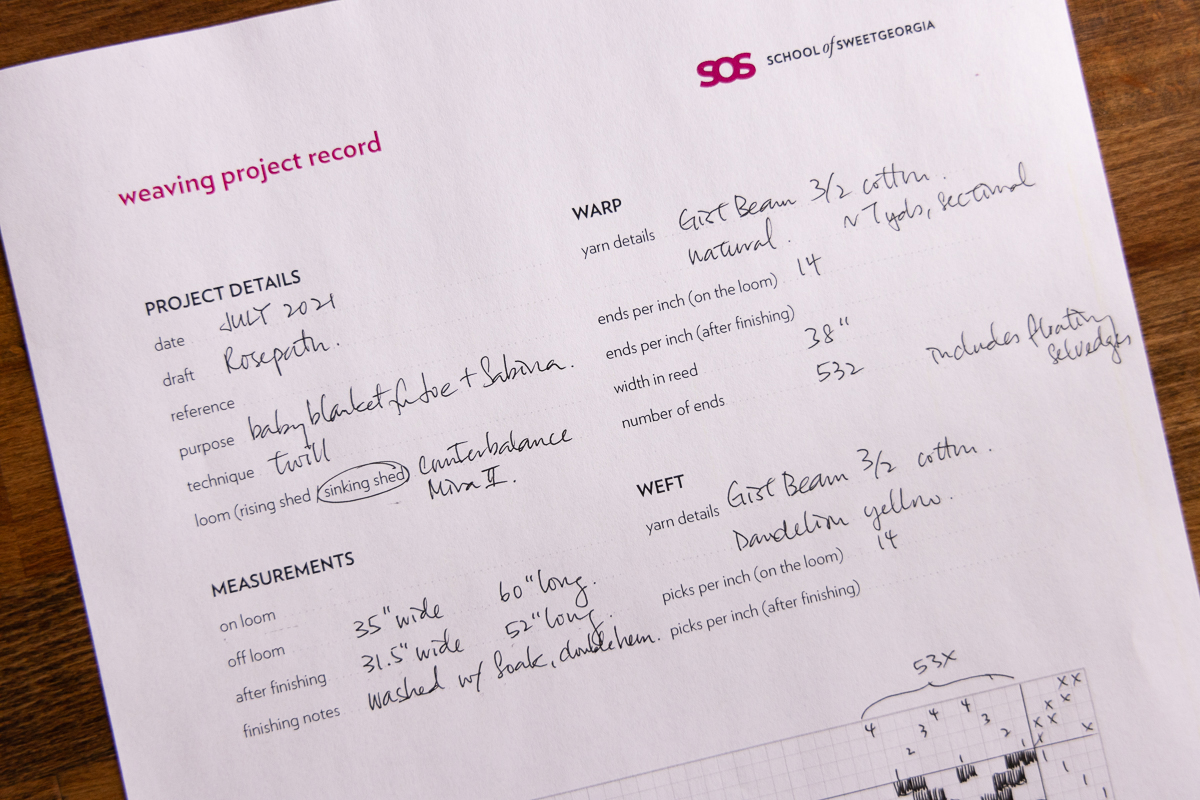 SOS SCHOOL of SWEETGEORGIA
weaving project record
PROJECT DETAILS
date JULY 2021
draft Rosepath.
reference
purpose baby blanket for Joe + Sabrina.
technique twill
loom (rising shed / sinking shed) Counterbalance
Mira II.
MEASUREMENTS
on loom
off loom 35" wide 60" long.
after finishing 31.5" wide 52" long.
finishing notes washed w/ Soak, double hem.
WARP
yarn details Gist Beam 3/2 cotton.
natural. ~ 7 yds, sectional
ends per inch (on the loom) 14
ends per inch (after finishing)
width in reed 38"
number of ends 532 includes floating
selvedges
WEFT
yarn details Gist Beam 3/2 cotton.
Dandelion yellow.
picks per inch (on the loom) 14
picks per inch (after finishing)
53X
x x
4 4 4 x x
3 3 x x
2 2 x x
1 1 1 1
1
1